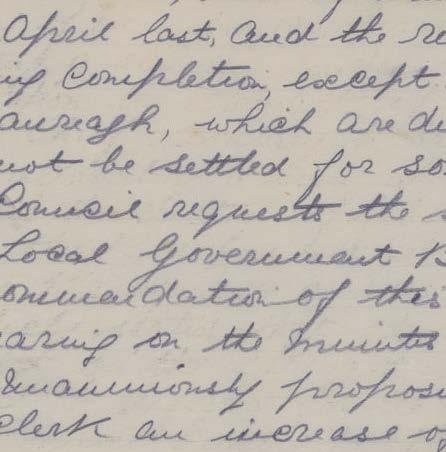 April last, and the re
ing completion, except
aureagh, which are di
not be settled for so
Council requests the
Local Government B
ommendation of this
earing on the minutes
unanimously propos
clerk an increase of